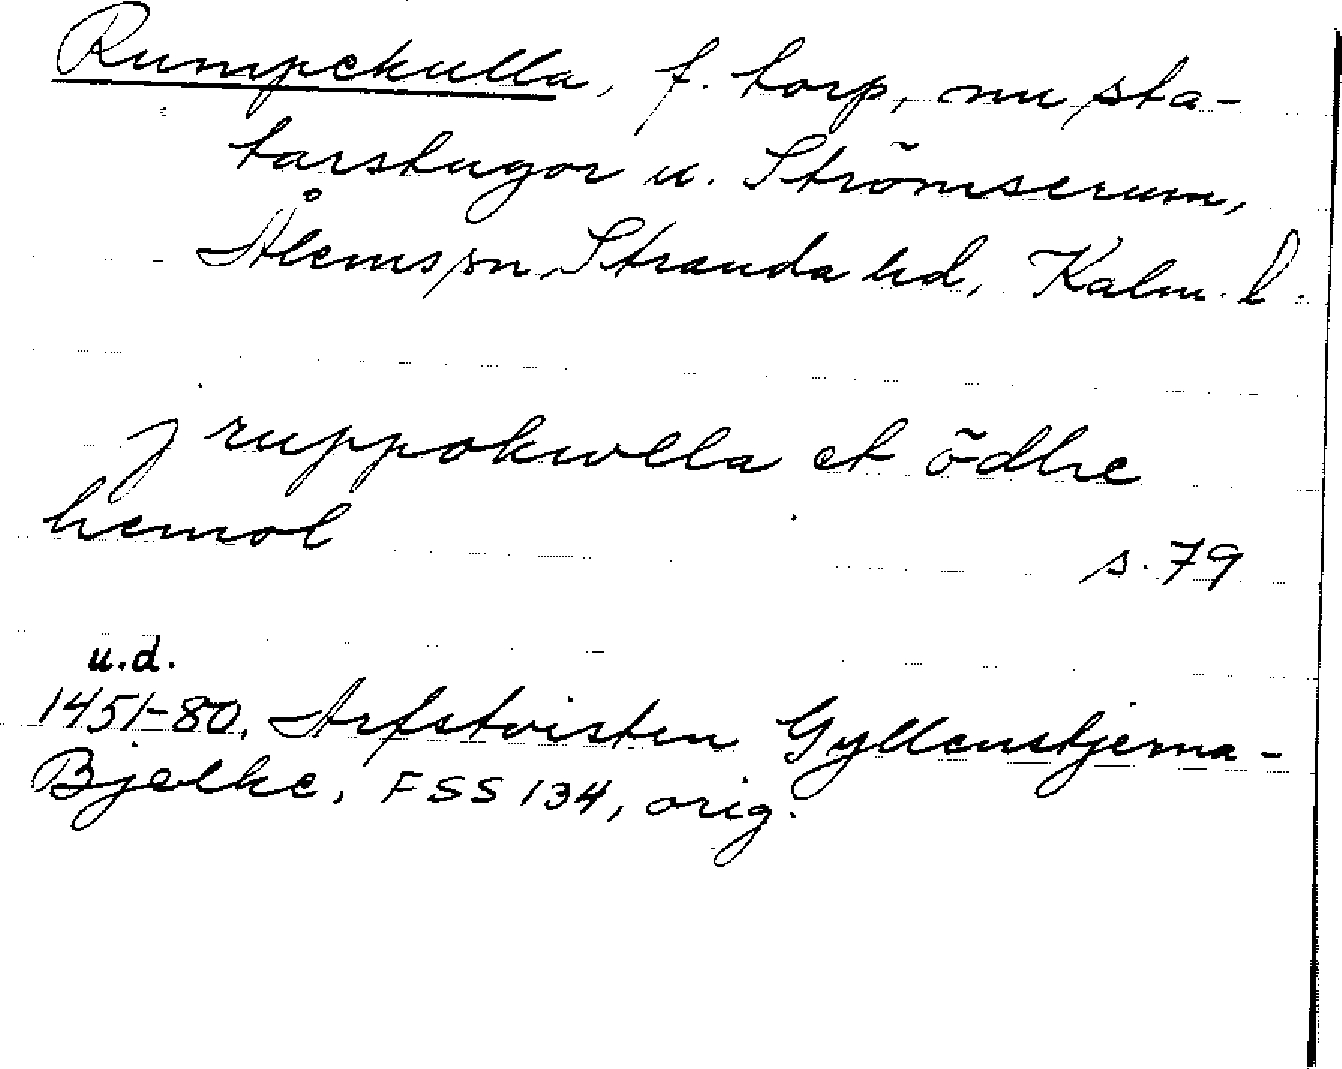 Rumpekulla, f. torp, nu sta-
tarstugor u. Strömserum,
Ålems sn, Stranda hd, Kalm. l.
j ruppokwlla et ödhe
hemol
s. 79
u.d.
1451-80, Arfstvisten Gyllenstjerna-
Bjelke, FSS 134, orig.